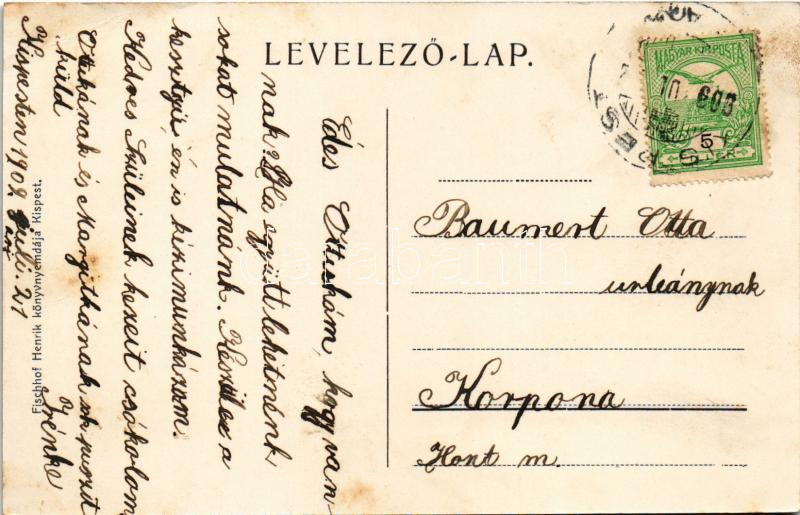 LEVELEZŐ-LAP.
MAGYAR KIR. POSTA
5
Édes Ottuskám, hogy van-
nak? Ha együtt lehetnénk
sokat mulatnánk. Készül ez a
kesztyü, én is kézimunkázom.
Kedves Szüleinek kezeit csókolom
Ottikának és Margithának sok puszit
küld
Irénke
Kispesten 1909 Juli. 21
Fischhof Henrik könyvnyomdája Kispest.
Baumert Otta
urleánynak
Korpona
Hont m.
darabanth